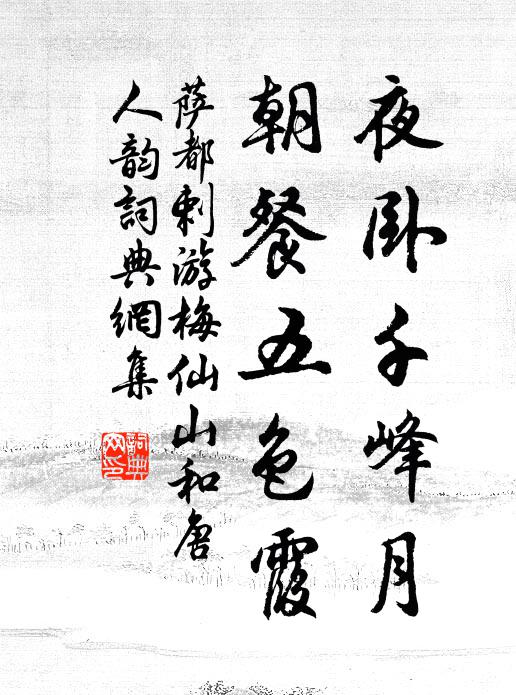 夜卧千峰月
朝餐五色霞
萨都剌游梅仙山和唐
人韵詞典網集
詞典
网印